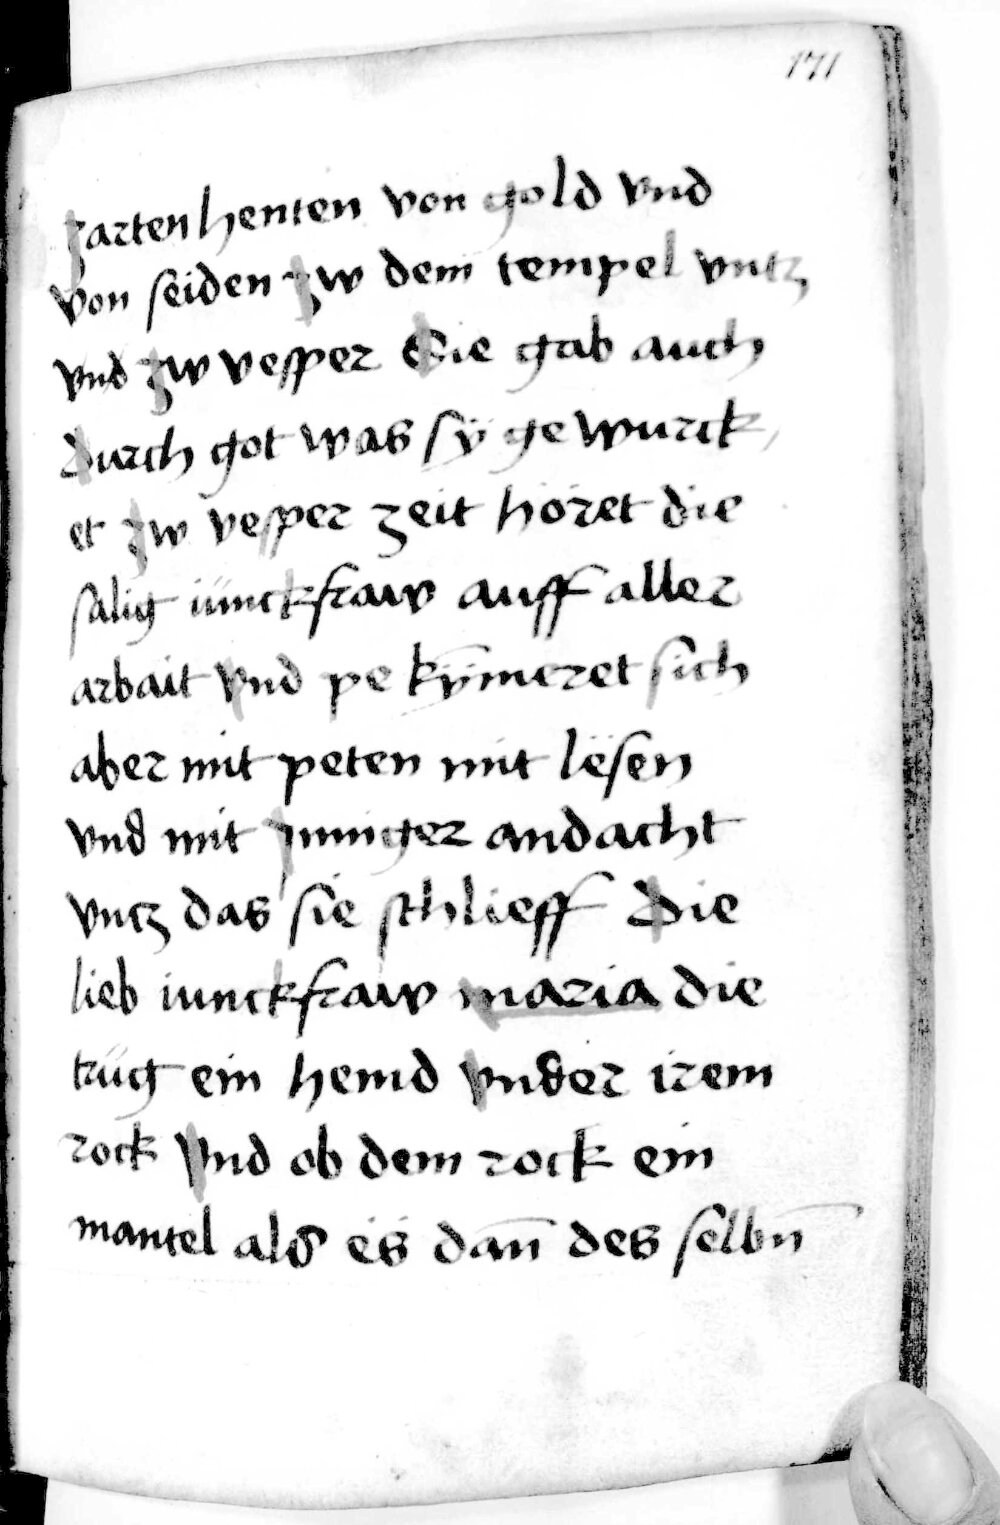 171
zarten henten von gold vnd
von seiden zw dem tempel vntz
vnd zw vesper Sie gab auch
durch got was sÿ ge wurck,
et zw vesper zeit höret die
salig iünckfraw auff aller
arbait vnd pe kÿmeret sich
aber mit peten mit lësen
vnd mit jnniger andacht
vntz das sie schlieff Die
lieb iunckfraw maria die
trüg ein hemd vnder irem
rock Vnd ob dem rock ein
mantel als es dan̄ des selbn̄